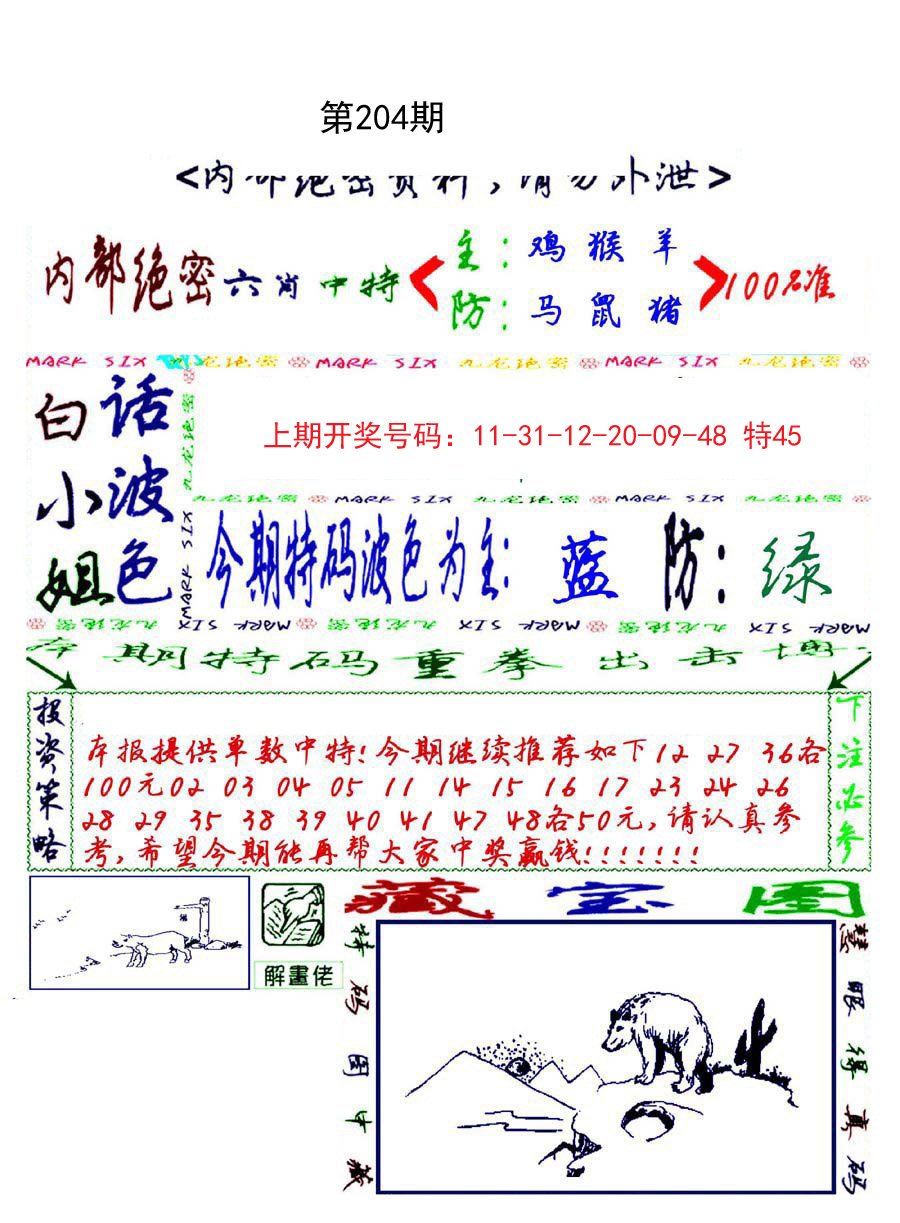 第204期
<内部绝密资料,请勿外泄>
内部绝密六肖中特
主:鸡 猴 羊
防:马 鼠 猪
100%准
MARK SIX 九龙绝密 MARK SIX 九龙绝密 MARK SIX 九龙绝密
白话
小波
姐色
九龙绝密
MARK SIX
上期开奖号码:11-31-12-20-09-48 特45
九龙绝密 MARK SIX 九龙绝密 MARK SIX 九龙绝密
今期特码波色为主:蓝 防:绿
九龙绝密 MARK SIX 九龙绝密 MARK SIX 九龙绝密 MARK SIX
本期特码重拳出击博
投资策略
本报提供单数中特!今期继续推荐如下12 27 36各
100元02 03 04 05 11 14 15 16 17 23 24 26
28 29 35 38 39 40 41 47 48各50元,请认真参
考,希望今期能再帮大家中奖赢钱!!!!!!!
下注必参
解畫佬
藏宝图
特码图中藏
慧眼得真码